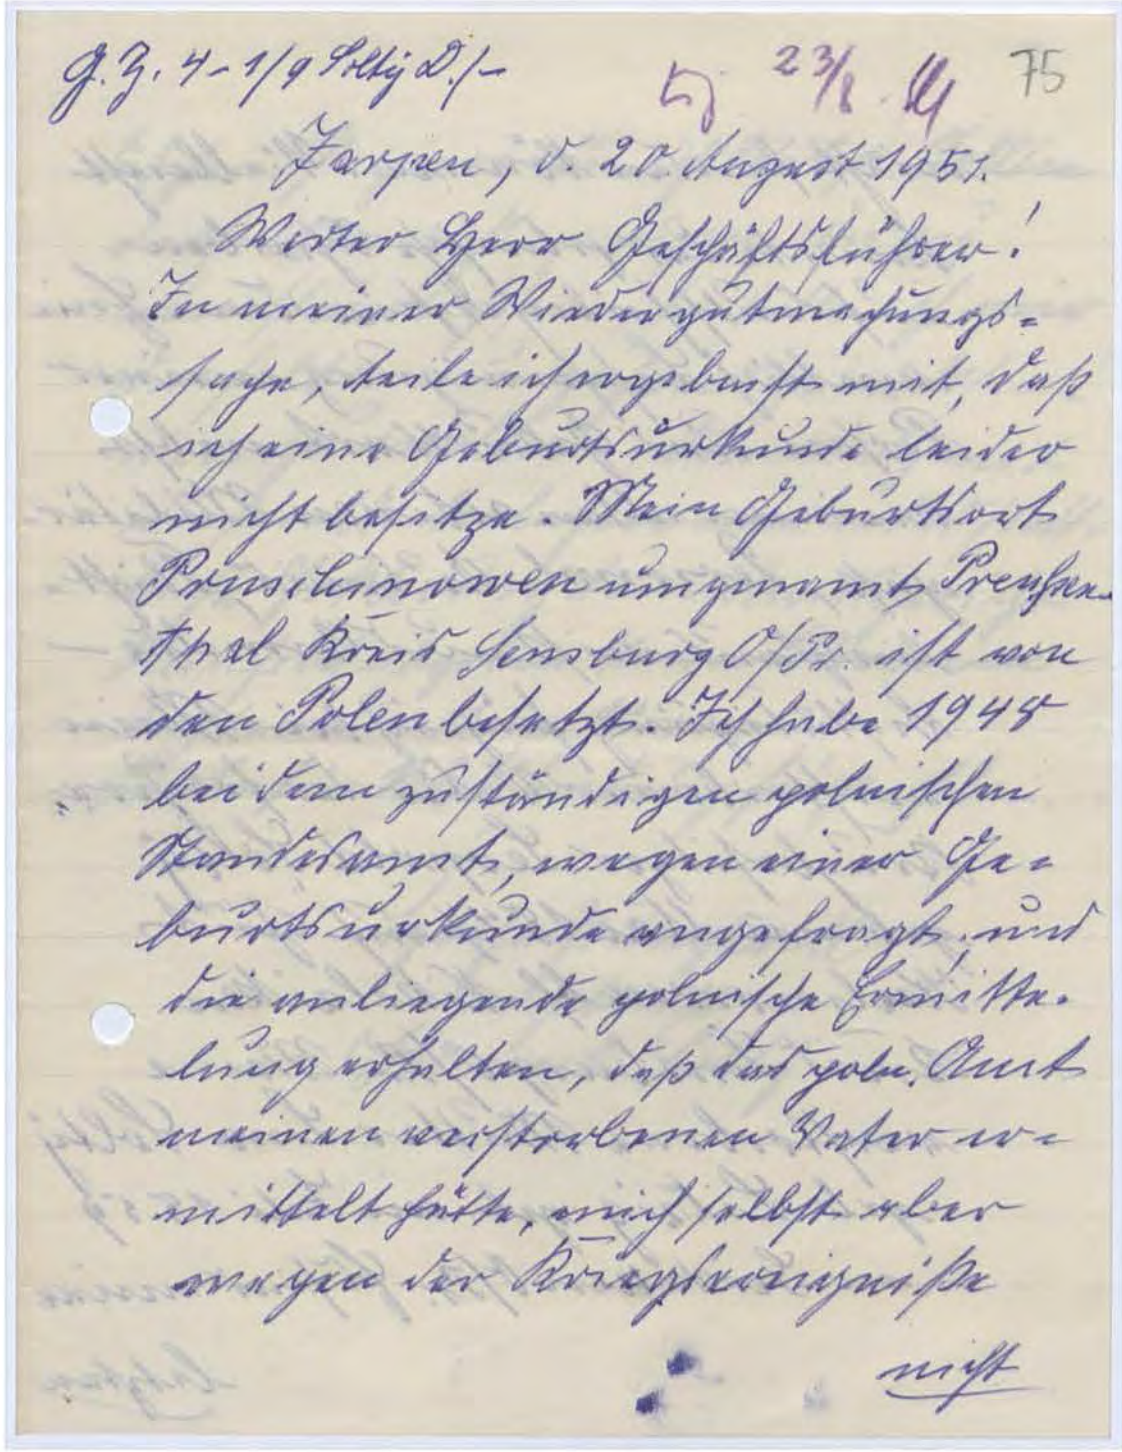 G. Z. 4 - 1/9 Soltÿ D./-
23/8.
75
Zarpen, d. 20. August 1951.
Werter Herr Geschäftsführer!
In meiner Wiedergutmachungs=
sache, teile ich ergebenst mit, daß
ich eine Geburtsurkunde leider
nicht besitze. Mein Geburtsort
Pruschinowen umgenannt Preußen-
thal Kreis Sensburg O/Pr. ist von
den Polen besetzt. Ich habe 1948
bei dem zuständigen polnischen
Standesamt, wegen einer Ge=
burtsurkunde angefragt, und
die anliegende polnische Ermitte-
lung erhalten, daß das poln. Amt
meinen verstorbenen Vater er=
mittelt hätte, mich selbst aber
wegen der Kriegsereigniße
nicht